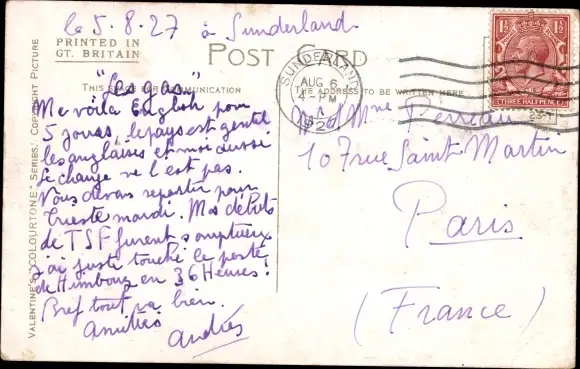 le 5.8.27 à Sunderland
PRINTED IN
GT. BRITAIN
POST CARD
THIS SPACE FOR COMMUNICATION
THE ADDRESS TO BE WRITTEN HERE
VALENTINE'S "COLOURTONE" SERIES. COPYRIGHT PICTURE
Me voila English pour
5 jours, le pays est gentil
les anglaises et moi aussi
le change ne l'est pas.
Nous devons repartir pour
Trieste mardi. Mes débuts
de TSF furent somptueux
j'ai juste touché le poste
de Hambourg en 36 Heures!
Bref tout va bien.
Amitiés
Andrés
SUNDERLAND
AUG 6
4-PM
1½ 1½
THREE HALF PENCE
M et Mme Perreau
107 rue Saint Martin
Paris
(France)